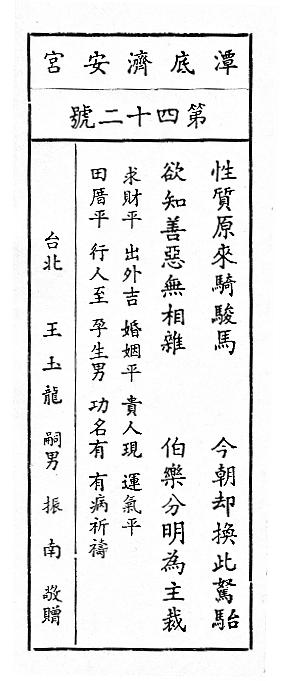 潭底濟安宮
第四十二號
性質原來騎駿馬 今朝却換此駑駘
欲知善惡無相雜 伯樂分明為主裁
求財平 出外吉 婚姻平 貴人現 運氣平
田厝平 行人至 孕生男 功名有 有病祈禱
台北 王玉龍 嗣男 振南 敬贈